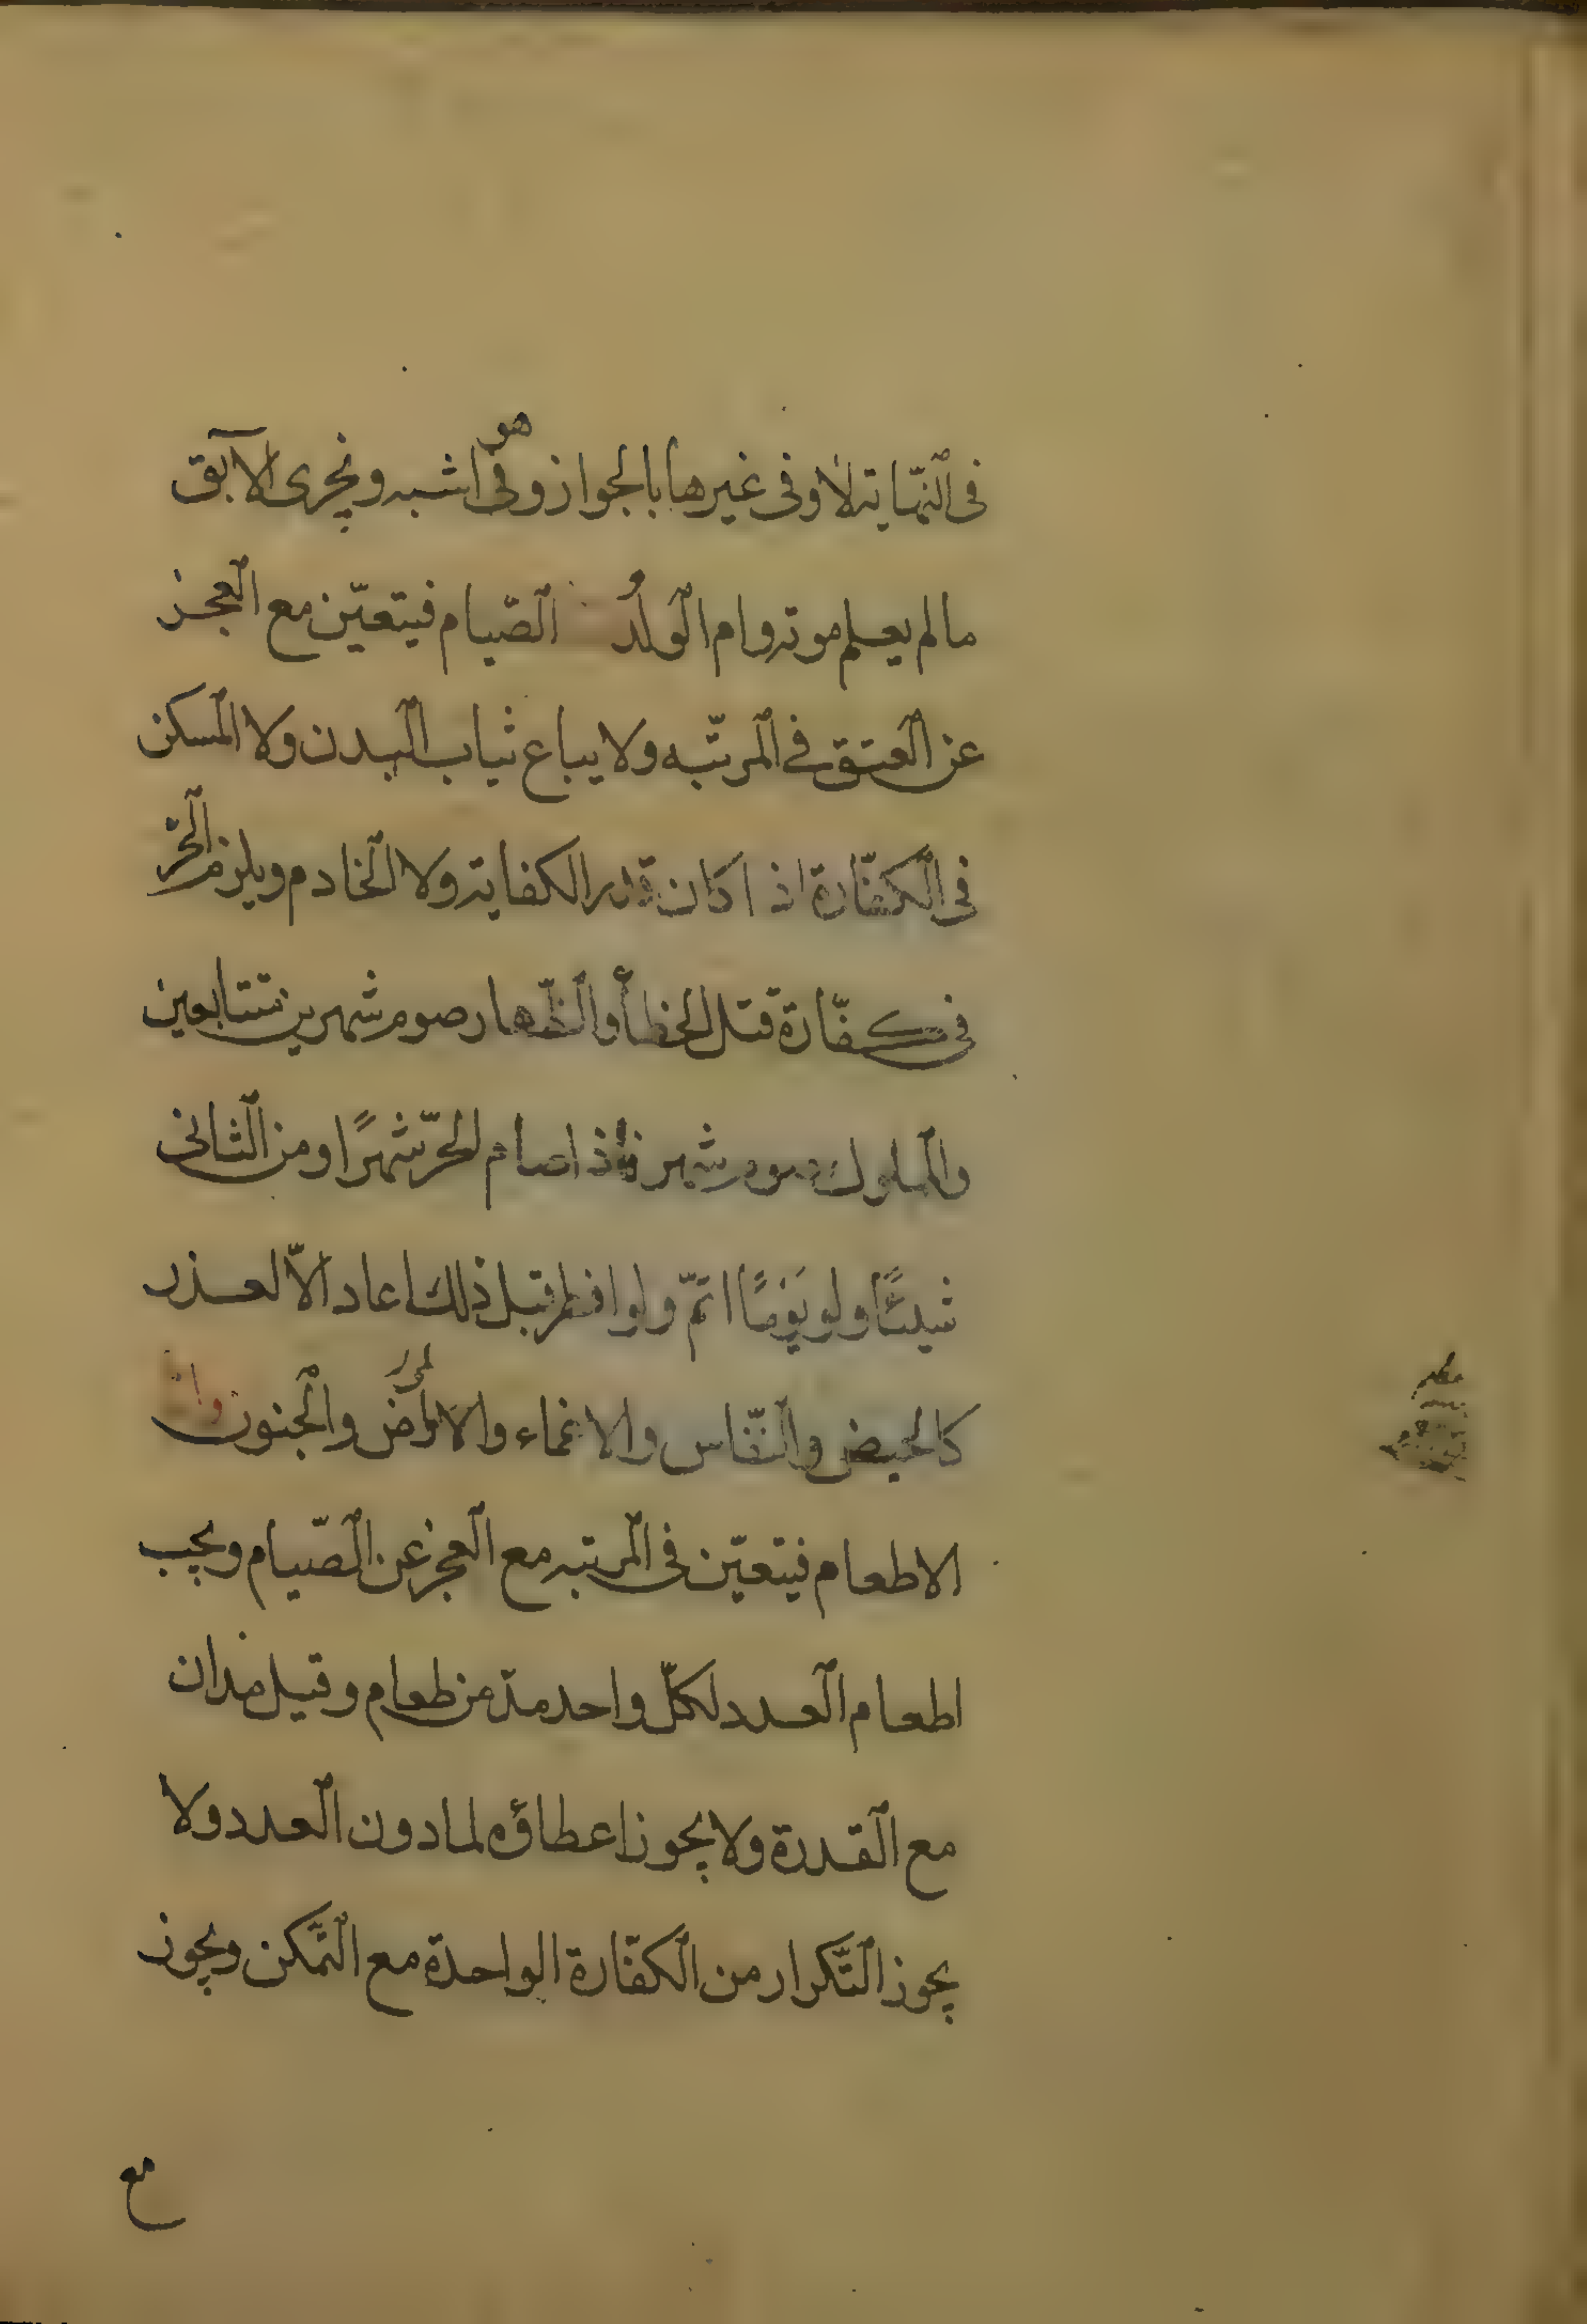 فى النّهاية لا وفى غيرها بالجواز وفى هو اشبه ويجزى الآبق
ما لم يعلم موته وام الولد الصّيام فيتعيّن مع العجز
عن العتق فى المرتّبه ولا يباع ثياب البدن ولا المسكن
فى الكفّارة اذا كان قدر الكفاية ولا الخادم ويلزم الحر
فى كفّارة قتل الخطأ والظّهار صوم شهرين متتابعين
والمملوك صوم شهر فاذا صام الحرّ شهرًا ومن الثانى
شيئًا ولو يَوْمًا اتمّ ولو افطر قبل ذلك اعاد الاّ لعذر
كالحيض والنّفاس والاغماء والامراض والجنون وا
الاطعام فيتعيّن فى المرتبه مع العجز عن الصّيام ويجب
اطعام العدد لكلّ واحد مدّ من طعام وقيل مدان
مع القدرة ولا يجوز اعطاؤه لما دون العدد ولا
يجوز التّكرار من الكفّارة الواحدة مع التّمكن ويجوز
مع